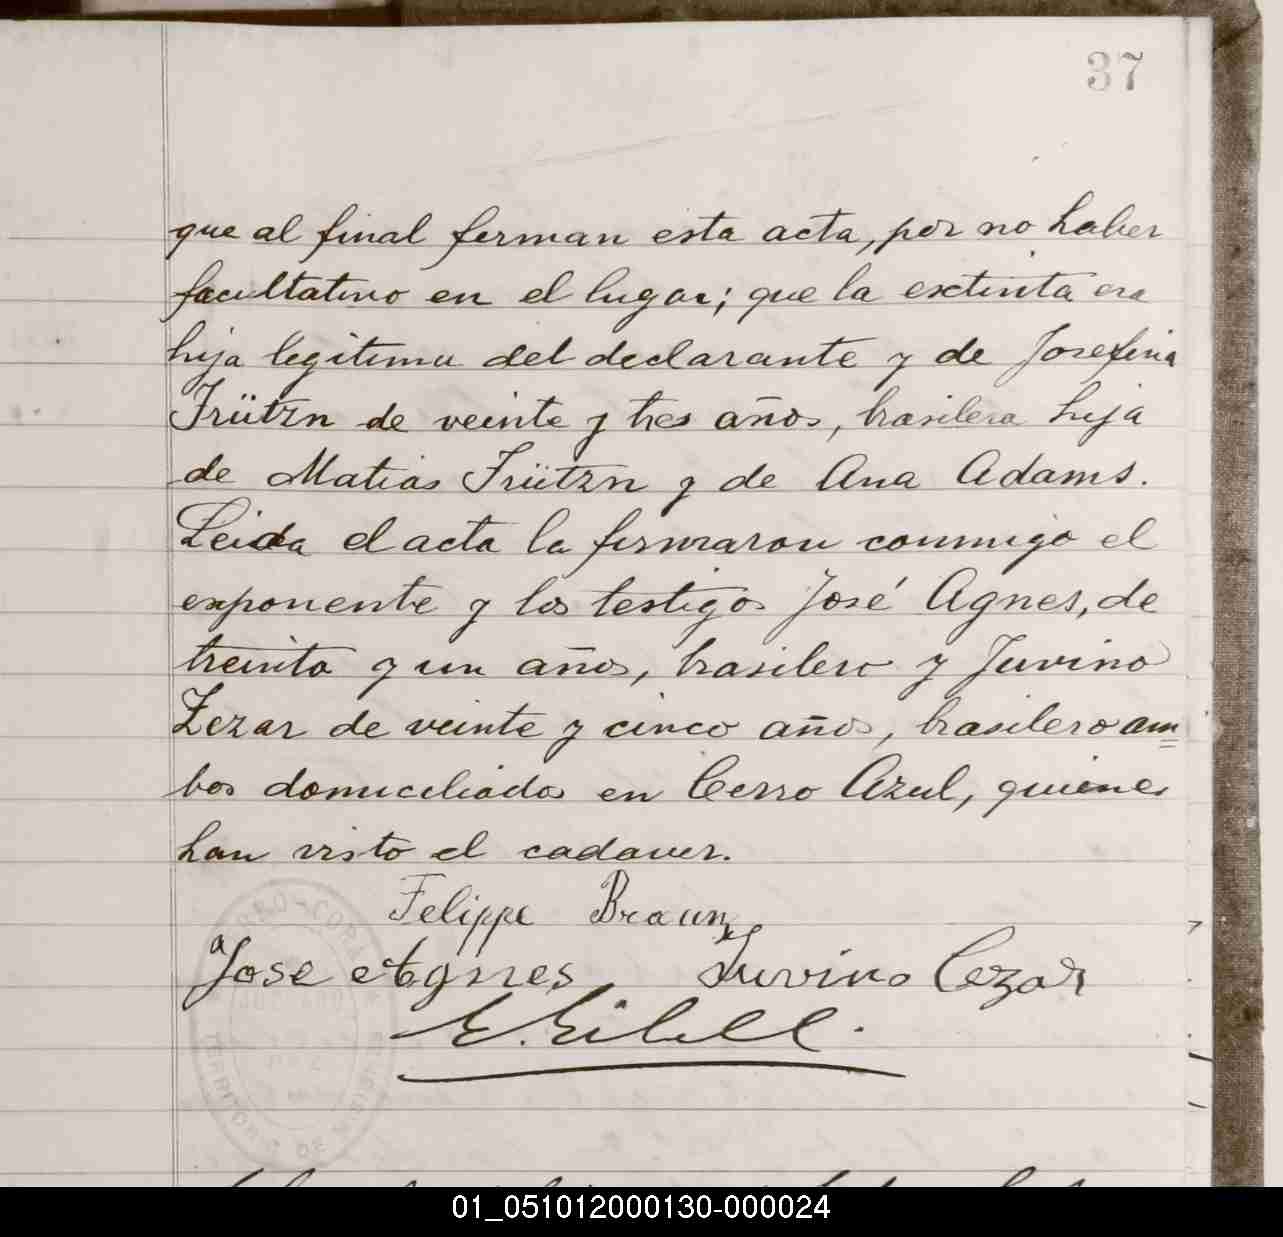 37
que al final ferman esta acta, por no haber
facultativo en el lugar; que la extinta era
hija legitima del declarante y de Josefina
Frützn de veinte y tres años, brasilera hija
de Matias Frützn y de Ana Adams.
Leida el acta la firmaron conmigo el
exponente y los testigos José Agnes, de
treinta y un años, brasilero y Juvino
Zezar de veinte y cinco años, brasilero am=
bos domiciliados en Cerro Azul, quienes
han visto el cadaver.
Felippe Braun
Jose Agnes Juvino Cezar
CERRO-CORA
JUZGADO
PAZ
TERRITORIO DE MISIONES
01_051012000130-000024